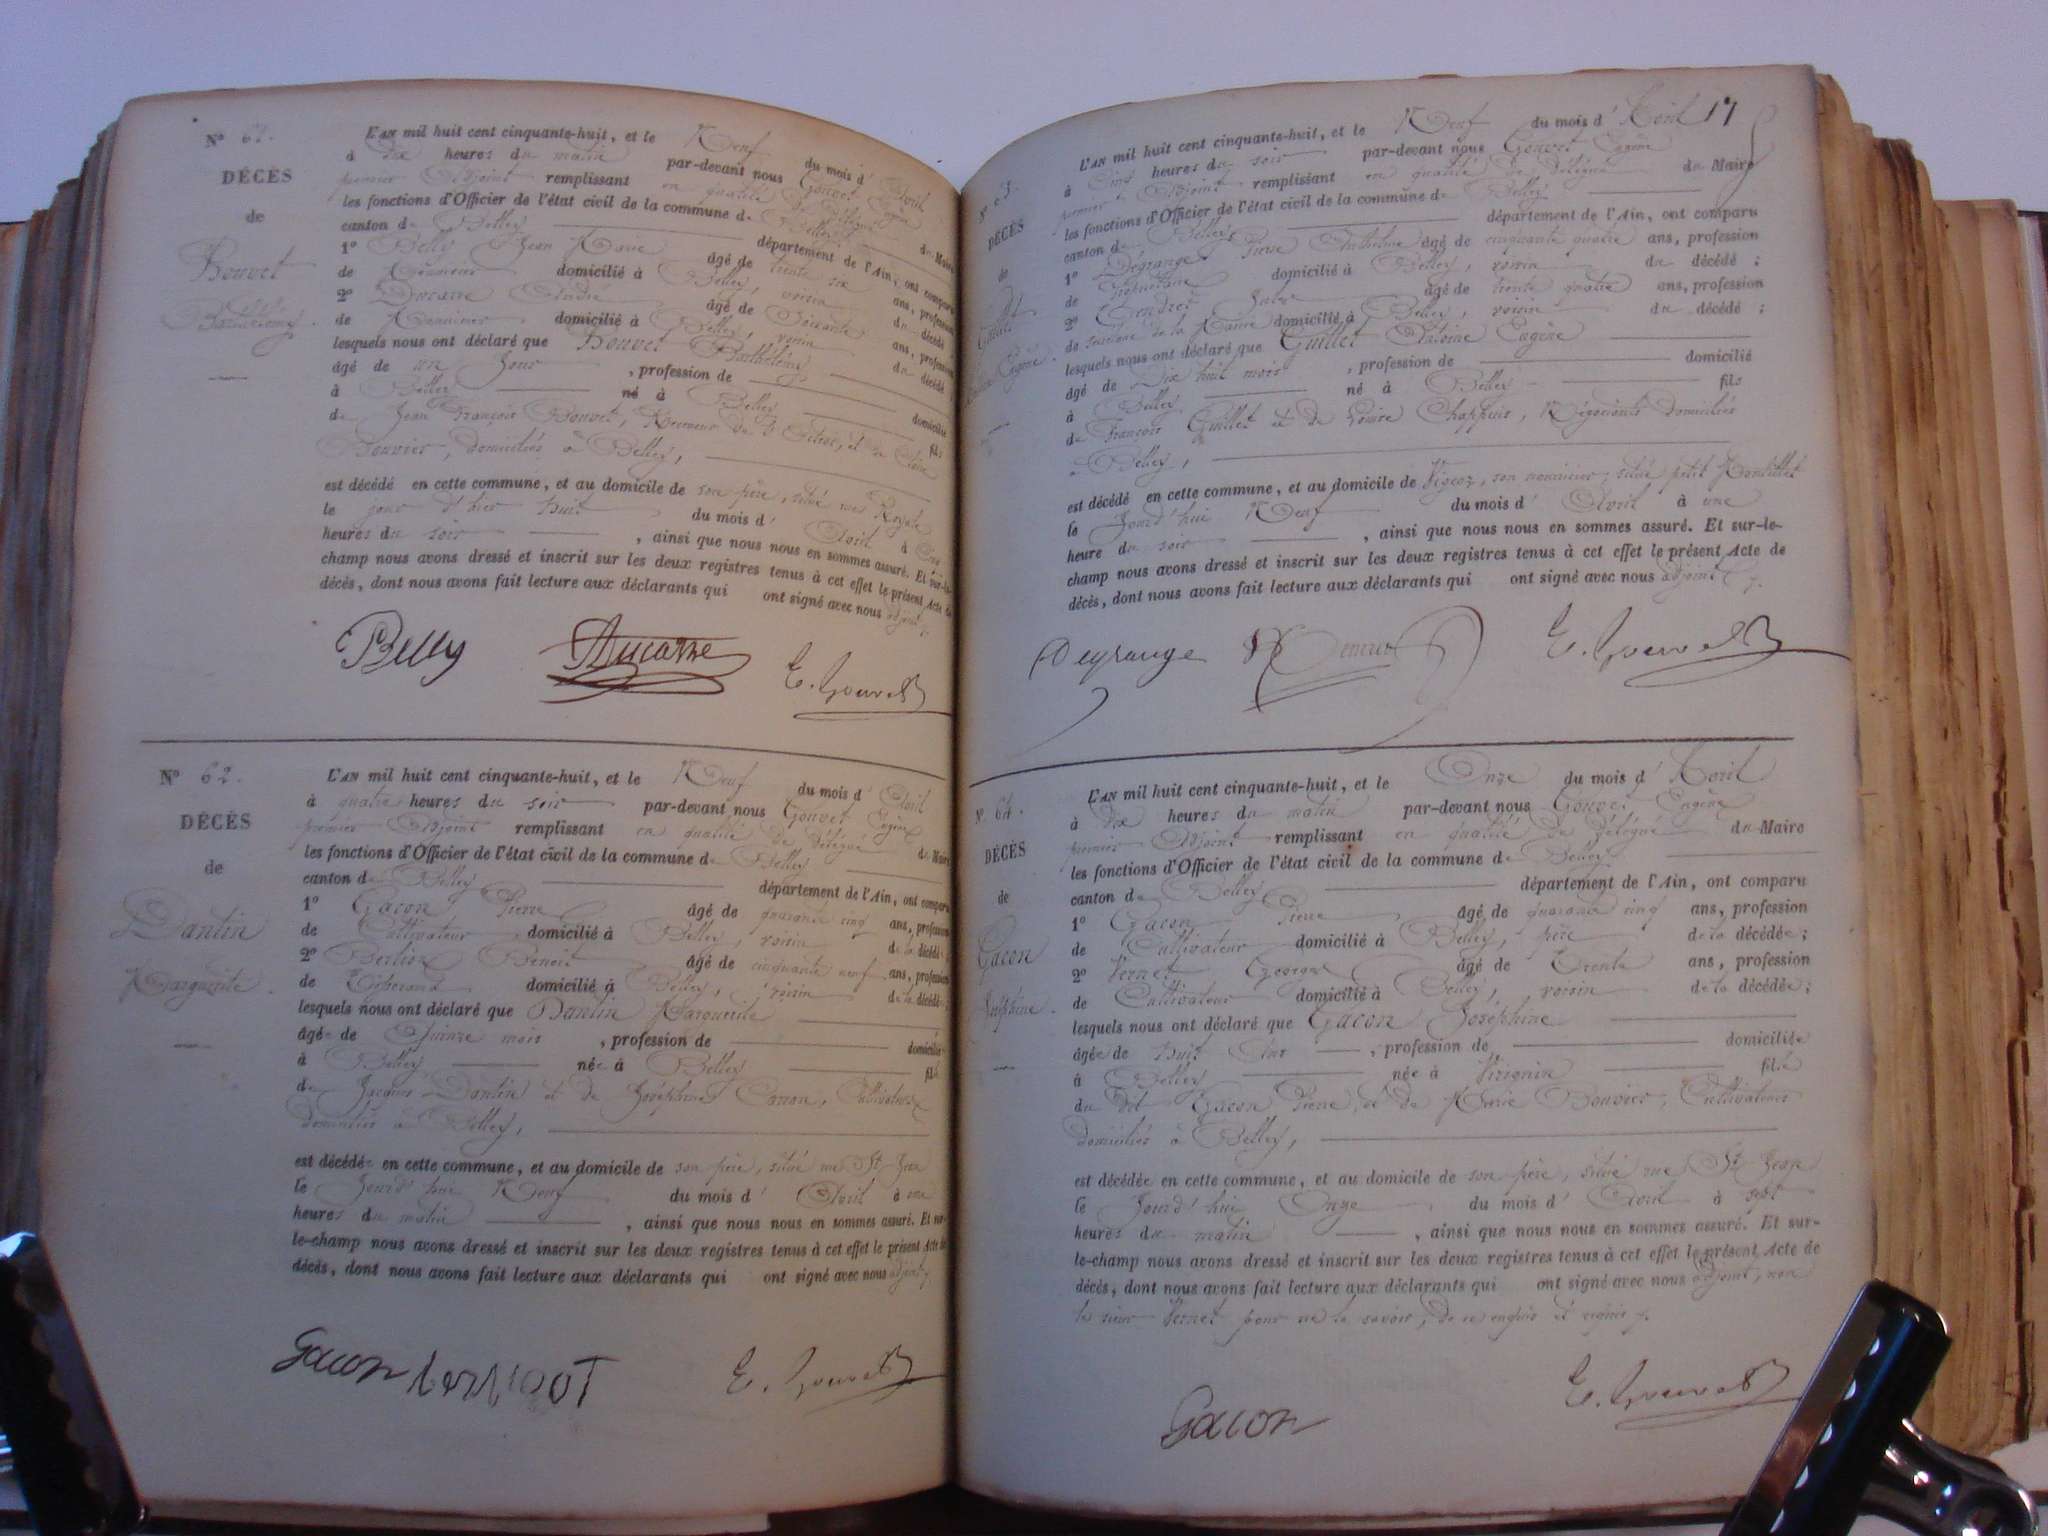 N° 61.
DÉCÈS
de
Bouvet
Barthélemy.
L'AN mil huit cent cinquante-huit, et le Neuf du mois d' Avril
à dix heures du matin par-devant nous Gouvet Eugène
premier Adjoint remplissant en qualité de Délégué du Maire
les fonctions d'Officier de l'état civil de la commune de Belley
canton de Belley département de l'Ain, ont comparu
1° Belly Jean Marie âgé de trente six ans, profession
de domicilié à Belley, voisin du décédé
2° Ducarre André âgé de Soixante ans, profession
de domicilié à Belley, voisin du décédé
lesquels nous ont déclaré que Bouvet Barthélemy
âgé de un Jour , profession de domicilié
à Belley né à Belley fils
de Jean François Bouvet, Receveur de l'Octroi, et de Claire
Bouvier, domiciliés à Belley,
est décédé en cette commune, et au domicile de son père, situé rue Royale
le jour d'hier huit du mois d' Avril à
heures du soir , ainsi que nous nous en sommes assuré. Et sur-le-
champ nous avons dressé et inscrit sur les deux registres tenus à cet effet le présent Acte de
décès, dont nous avons fait lecture aux déclarants qui ont signé avec nous adjoint
Belly Ducarre E. Gouvet
N° 62.
DÉCÈS
de
Dantin
Marguerite.
L'AN mil huit cent cinquante-huit, et le Neuf du mois d' Avril
à quatre heures du soir par-devant nous Gouvet Eugène
premier Adjoint remplissant en qualité de Délégué du Maire
les fonctions d'Officier de l'état civil de la commune de Belley
canton de Belley département de l'Ain, ont comparu
1° Gacon Pierre âgé de quarante cinq ans, profession
de Cultivateur domicilié à Belley, voisin de la décédée
2° Benoit âgé de cinquante neuf ans, profession
de domicilié à Belley, voisin de la décédée;
lesquels nous ont déclaré que Dantin Marguerite
âgée de Quinze mois , profession de domiciliée
à Belley née à Belley fille
de Jacques Dantin et de Joséphine Carron, Cultivateurs
domiciliés à Belley,
est décédée en cette commune, et au domicile de son père, situé rue St Jean
le Jourd'hui Neuf du mois d' Avril à une
heures du matin , ainsi que nous nous en sommes assuré. Et sur-
le-champ nous avons dressé et inscrit sur les deux registres tenus à cet effet le présent Acte de
décès, dont nous avons fait lecture aux déclarants qui ont signé avec nous adjoint
Gacon E. Gouvet
17
DÉCÈS
de
L'AN mil huit cent cinquante-huit, et le Neuf du mois d' Avril
à Cinq heures du soir par-devant nous Gouvet Eugène
premier Adjoint remplissant en qualité de Délégué du Maire
les fonctions d'Officier de l'état civil de la commune de Belley
canton de Belley département de l'Ain, ont comparu
1° Dégrange Pierre Anthelme âgé de cinquante quatre ans, profession
de Propriétaire domicilié à Belley, voisin du décédé;
2° Jules âgé de trente quatre ans, profession
de secrétaire de la Mairie domicilié à Belley, voisin du décédé;
lesquels nous ont déclaré que Guillet Antoine Eugène
âgé de Dix huit mois , profession de domicilié
à Belley né à Belley fils
de François Guillet et de Louise Chappuis, Négociants domiciliés
à Belley,
est décédé en cette commune, et au domicile de son nourricier, situé petit
le Jourd'hui Neuf du mois d' Avril à une
heure du soir , ainsi que nous nous en sommes assuré. Et sur-le-
champ nous avons dressé et inscrit sur les deux registres tenus à cet effet le présent Acte de
décès, dont nous avons fait lecture aux déclarants qui ont signé avec nous adjoint
Degrange E. Gouvet
N° 64.
DÉCÈS
de
Gacon
Joséphine.
L'AN mil huit cent cinquante-huit, et le Onze du mois d' Avril
à dix heures du matin par-devant nous Gouvet Eugène
premier Adjoint remplissant en qualité de Délégué du Maire
les fonctions d'Officier de l'état civil de la commune de Belley
canton de Belley département de l'Ain, ont comparu
1° Gacon Pierre âgé de quarante cinq ans, profession
de Cultivateur domicilié à Belley, père de la décédée;
2° Vernet George âgé de Trente ans, profession
de Cultivateur domicilié à Belley, voisin de la décédée;
lesquels nous ont déclaré que Gacon Joséphine
âgée de huit Ans , profession de domiciliée
à Belley née à Virignin fille
du dit Gacon Pierre, et de Marie Bouvier, Cultivateurs
domiciliés à Belley,
est décédée en cette commune, et au domicile de son père, situé rue St Jean
le Jourd'hui Onze du mois d' Avril à sept
heures du matin , ainsi que nous nous en sommes assuré. Et sur-
le-champ nous avons dressé et inscrit sur les deux registres tenus à cet effet le présent Acte de
décès, dont nous avons fait lecture aux déclarants qui ont signé avec nous adjoint, non
le sieur Vernet pour ne le savoir, de ce enquis et requis
Gacon E. Gouvet